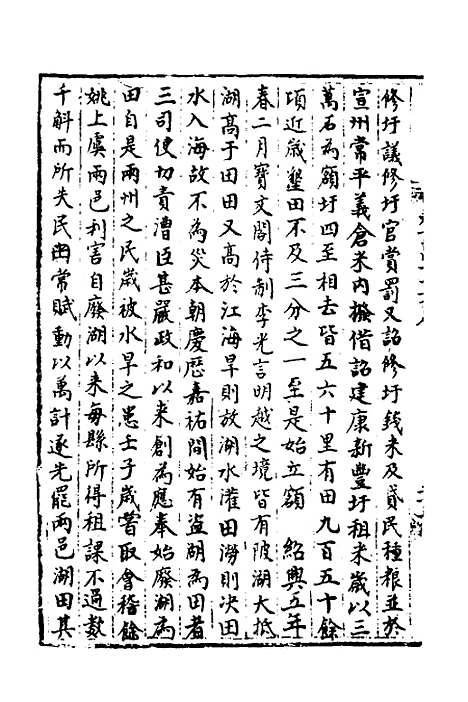 修圩議修圩官賞罰又詔修圩錢米及貸民種粮並於
宣州常平義倉米内撥借詔建康新豐圩租米歲以三
萬石為額圩四至相去皆五六十里有田九百五十餘
項近歲墾田不及三分之一至是始立額　紹興五年
春二月寶文閣待制李光言明越之境皆有陂湖大抵
湖高于田田又高於江海旱則放湖水灌田澇則决田
水入海故不為災本朝慶厯嘉祐間始有盗湖為田者
三司使切責漕臣甚嚴政和以来創為應奉始廢湖為
田自是兩州之民歲被水旱之患壬子歲嘗取會稽餘
姚上虞兩邑利害自廢湖以来每縣所得租課不過數
千斛而所失民田常賦動以萬計遂先罷兩邑湖田其